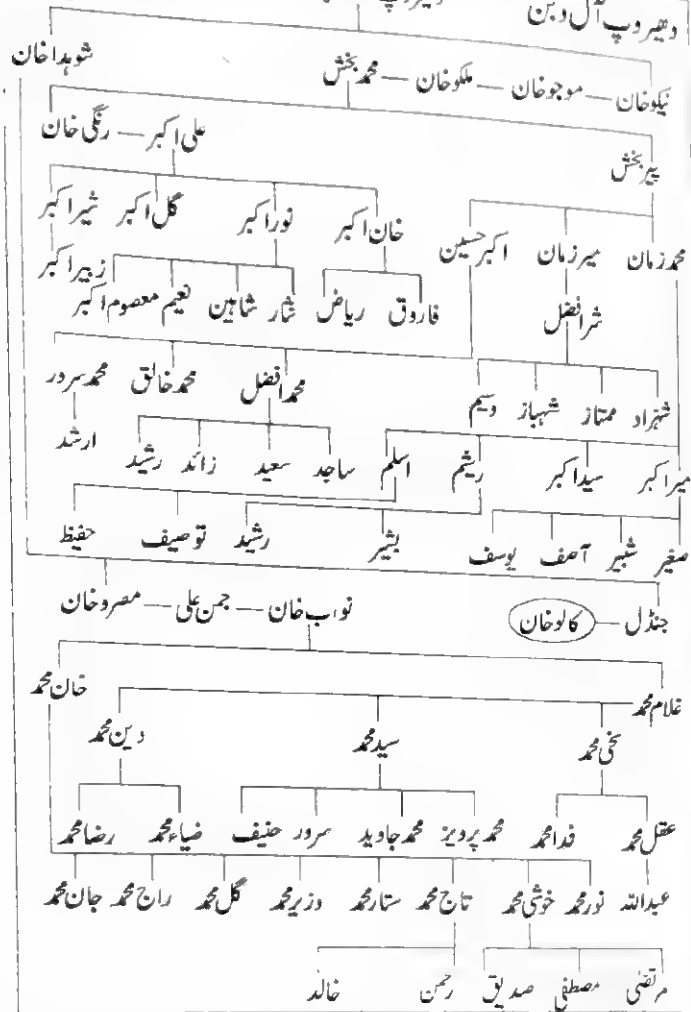 دھیروپ آل دبن
شوہداخان
نیکوخان — موجوخان — ملکوخان — محمد بخش
علی اکبر — رنگی خان
پیر بخش
خان اکبر نور اکبر گل اکبر شیر اکبر
محمد زمان میر زمان اکبر حسین
زبیر اکبر
فاروق ریاض نثار شاہین نعیم معصوم اکبر
شرافضل
محمد افضل محمد خالق محمد سرور
شہزاد ممتاز شہباز وسیم
ارشد
ساجد سعید زائد رشید
میر اکبر سید اکبر ریشم اسلم
صغیر شبیر آصف یوسف بشیر رشید توصیف حفیظ
جنڈل — کالوخان
نواب خان — جمن علی — مصروخان
غلام محمد خان محمد
سخی محمد سید محمد دین محمد
عقل محمد فدا محمد محمد پرویز محمد جاوید سرور حنیف ضیاء محمد رضا محمد
عبداللہ نور محمد خوشی محمد تاج محمد ستار محمد وزیر محمد گل محمد راج محمد جان محمد
مرتضیٰ مصطفیٰ صدیق رحمن خالد